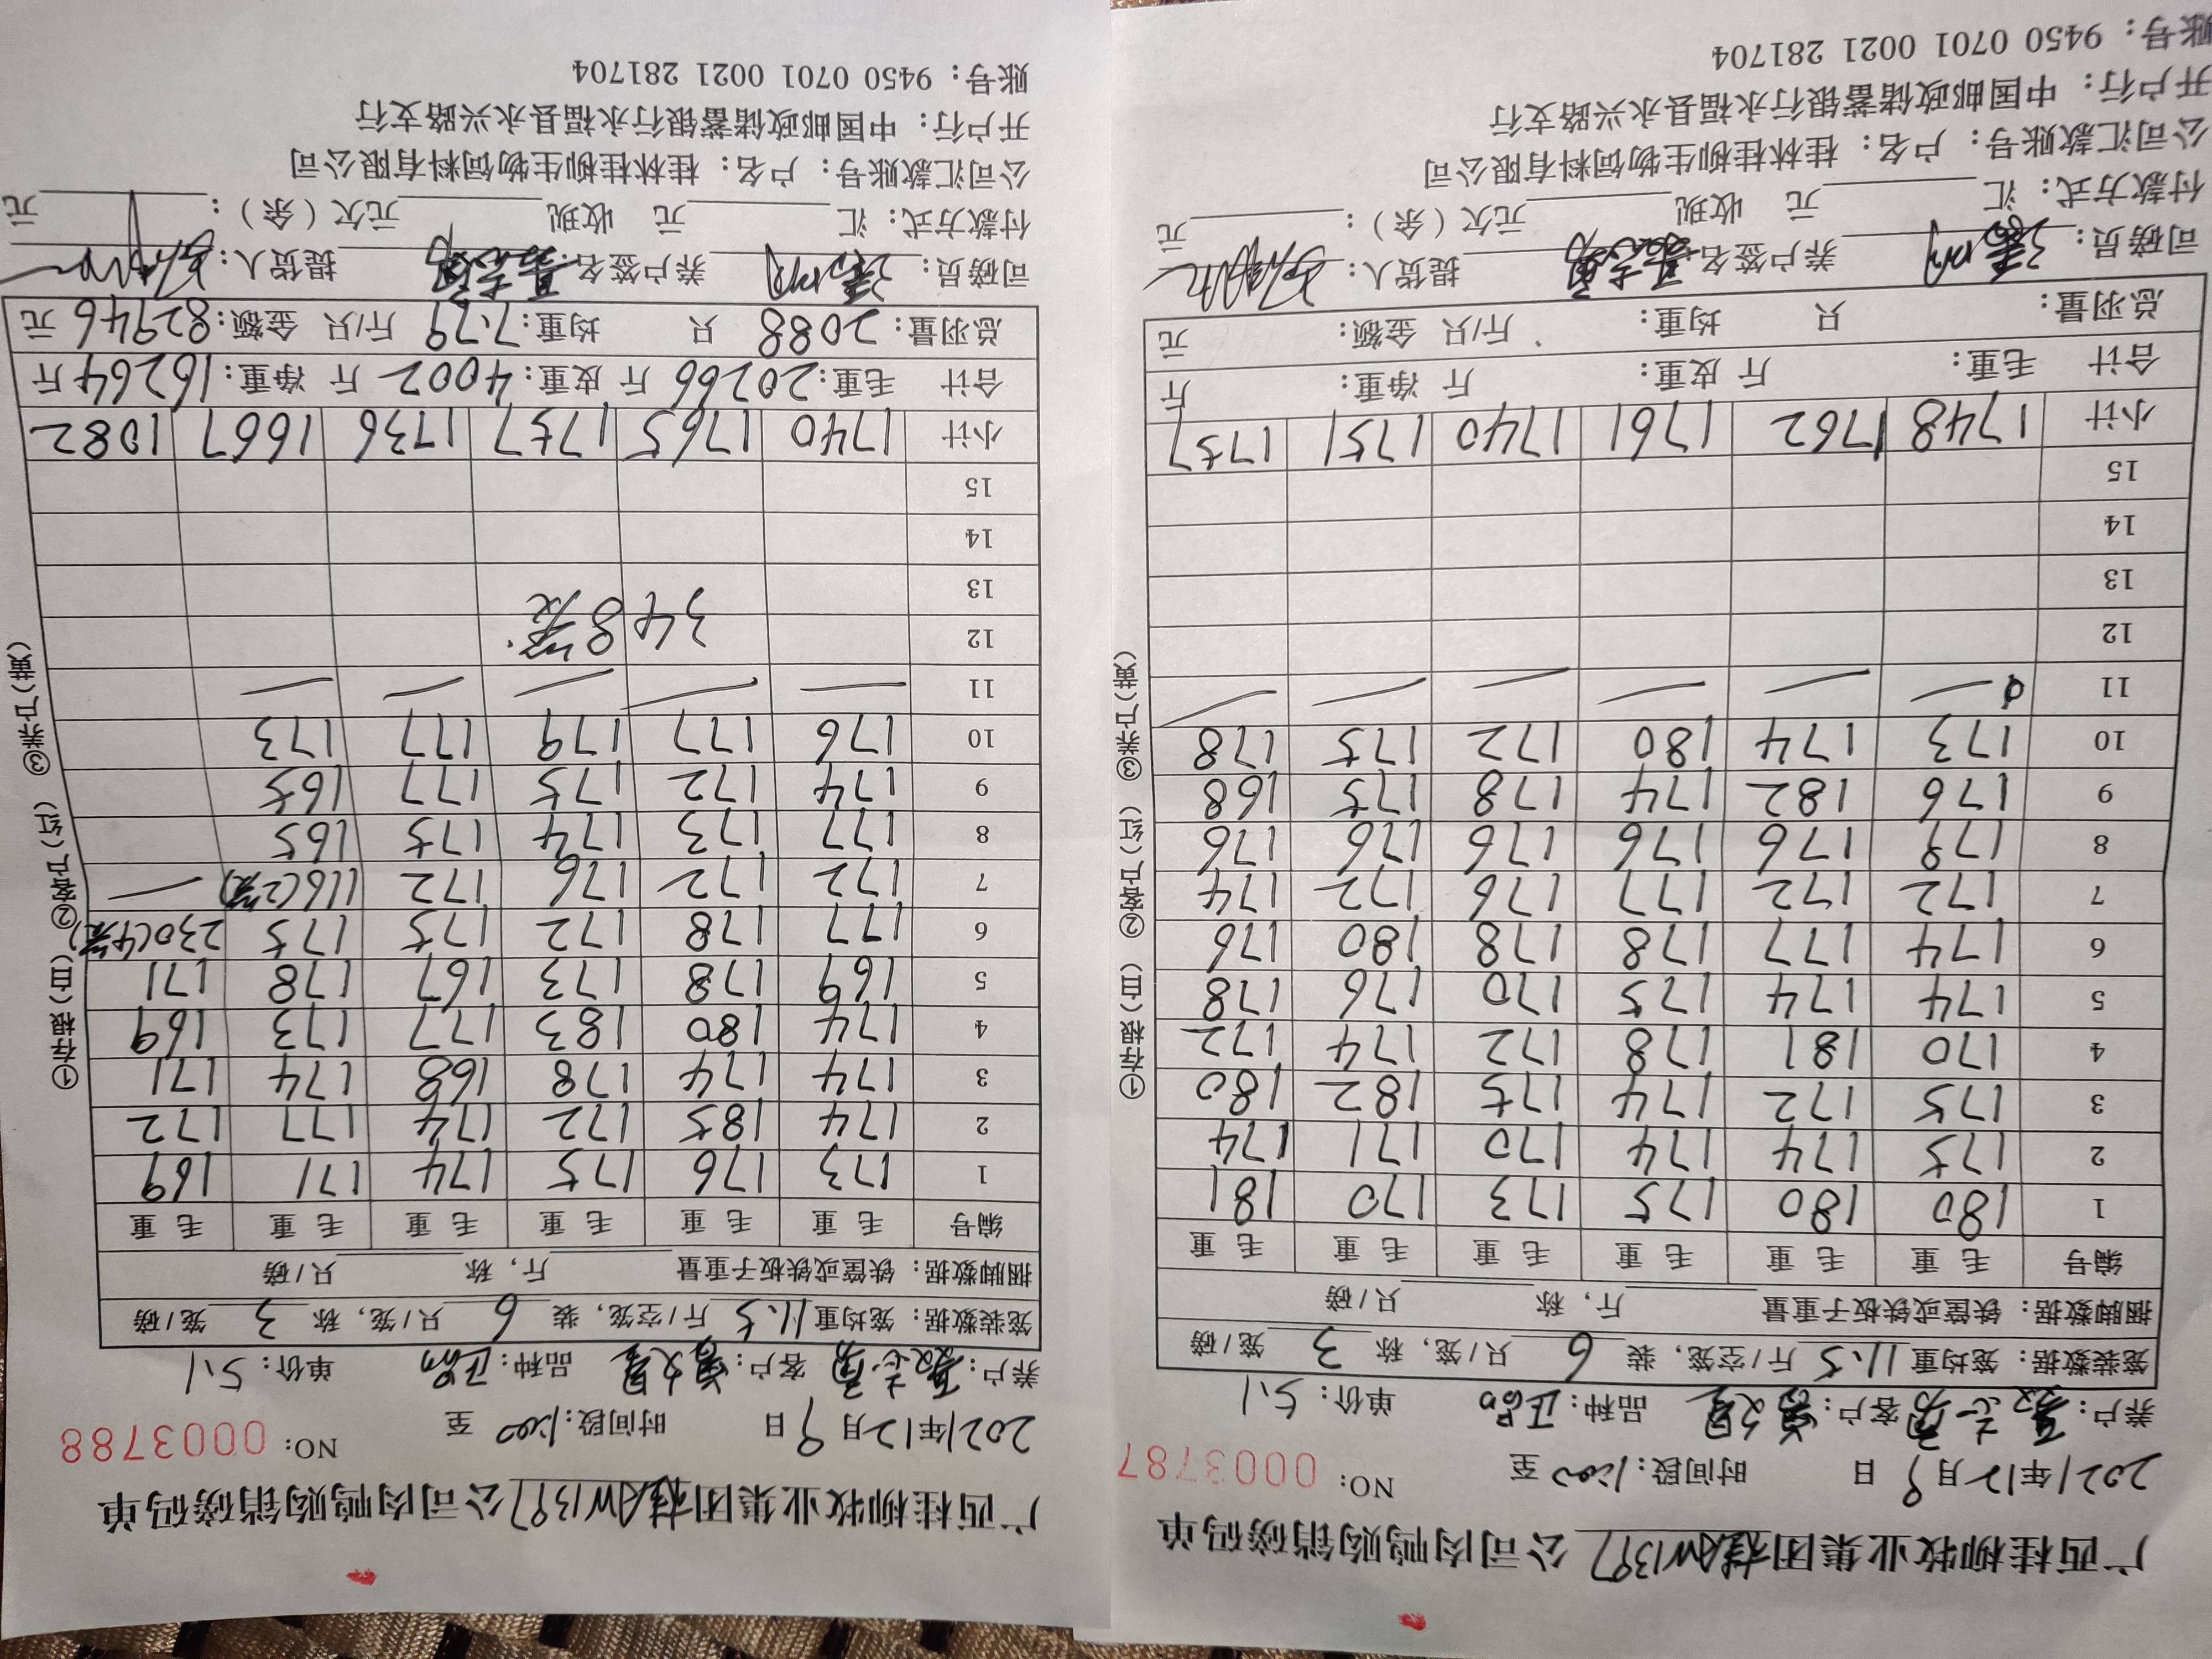 广西桂柳牧业集团桂AW1397公司肉鸭购销磅码单
2021年12月9日 时间段: 至 NO: 0003787
养户: 客户: 品种: 单价: 5.1
笼装数据: 笼均重 11.5 斤/空笼, 装 6 只/笼, 称 3 笼/磅
捆脚数据: 铁筐或铁板子重量 斤, 称 只/磅
编号 毛重 毛重 毛重 毛重 毛重 毛重
1 180 180 175 173 170 181
2 175 174 174 170 171 174
3 175 172 174 175 182 180
4 170 181 178 172 174 172
5 174 174 175 170 176 178
6 174 177 178 178 180 176
7 172 172 177 176 172 174
8 179 176 176 176 176 176
9 176 182 174 178 175 168
10 173 174 180 172 175 178
11 — — — — — —
12
13
14
15
小计 1748 1762 1761 1740 1751 1757
合计 毛重: 斤 皮重: 斤 净重: 斤
总羽量: 只 均重: 斤/只 金额: 元
司磅员: 养户签名: 提货人:
付款方式: 汇 元 收现 元欠(余): 元
公司汇款账号: 户名: 桂林桂柳生物饲料有限公司
开户行: 中国邮政储蓄银行永福县永兴路支行
账号: 9450 0701 0021 281704
①存根(白) ②客户(红) ③养户(黄)
广西桂柳牧业集团桂AW1397公司肉鸭购销磅码单
2021年12月9日 时间段: 至 NO: 0003788
养户: 客户: 品种: 单价: 5.1
笼装数据: 笼均重 11.5 斤/空笼, 装 6 只/笼, 称 3 笼/磅
捆脚数据: 铁筐或铁板子重量 斤, 称 只/磅
编号 毛重 毛重 毛重 毛重 毛重 毛重
1 173 176 175 174 171 169
2 174 185 172 174 177 172
3 174 174 178 168 174 171
4 174 180 183 177 173 169
5 169 178 173 167 178 171
6 177 178 172 175 175 230(4笼)
7 172 172 176 172 116(2笼) —
8 177 173 174 175 165
9 174 172 175 177 165
10 176 177 179 177 173
11 — — — — —
12 348笼
13
14
15
小计 1740 1765 1757 1736 1667 1082
合计 毛重: 20266 斤 皮重: 4002 斤 净重: 16264 斤
总羽量: 2088 只 均重: 7.79 斤/只 金额: 82946 元
司磅员: 养户签名: 提货人:
付款方式: 汇 元 收现 元欠(余): 元
公司汇款账号: 户名: 桂林桂柳生物饲料有限公司
开户行: 中国邮政储蓄银行永福县永兴路支行
账号: 9450 0701 0021 281704
①存根(白) ②客户(红) ③养户(黄)